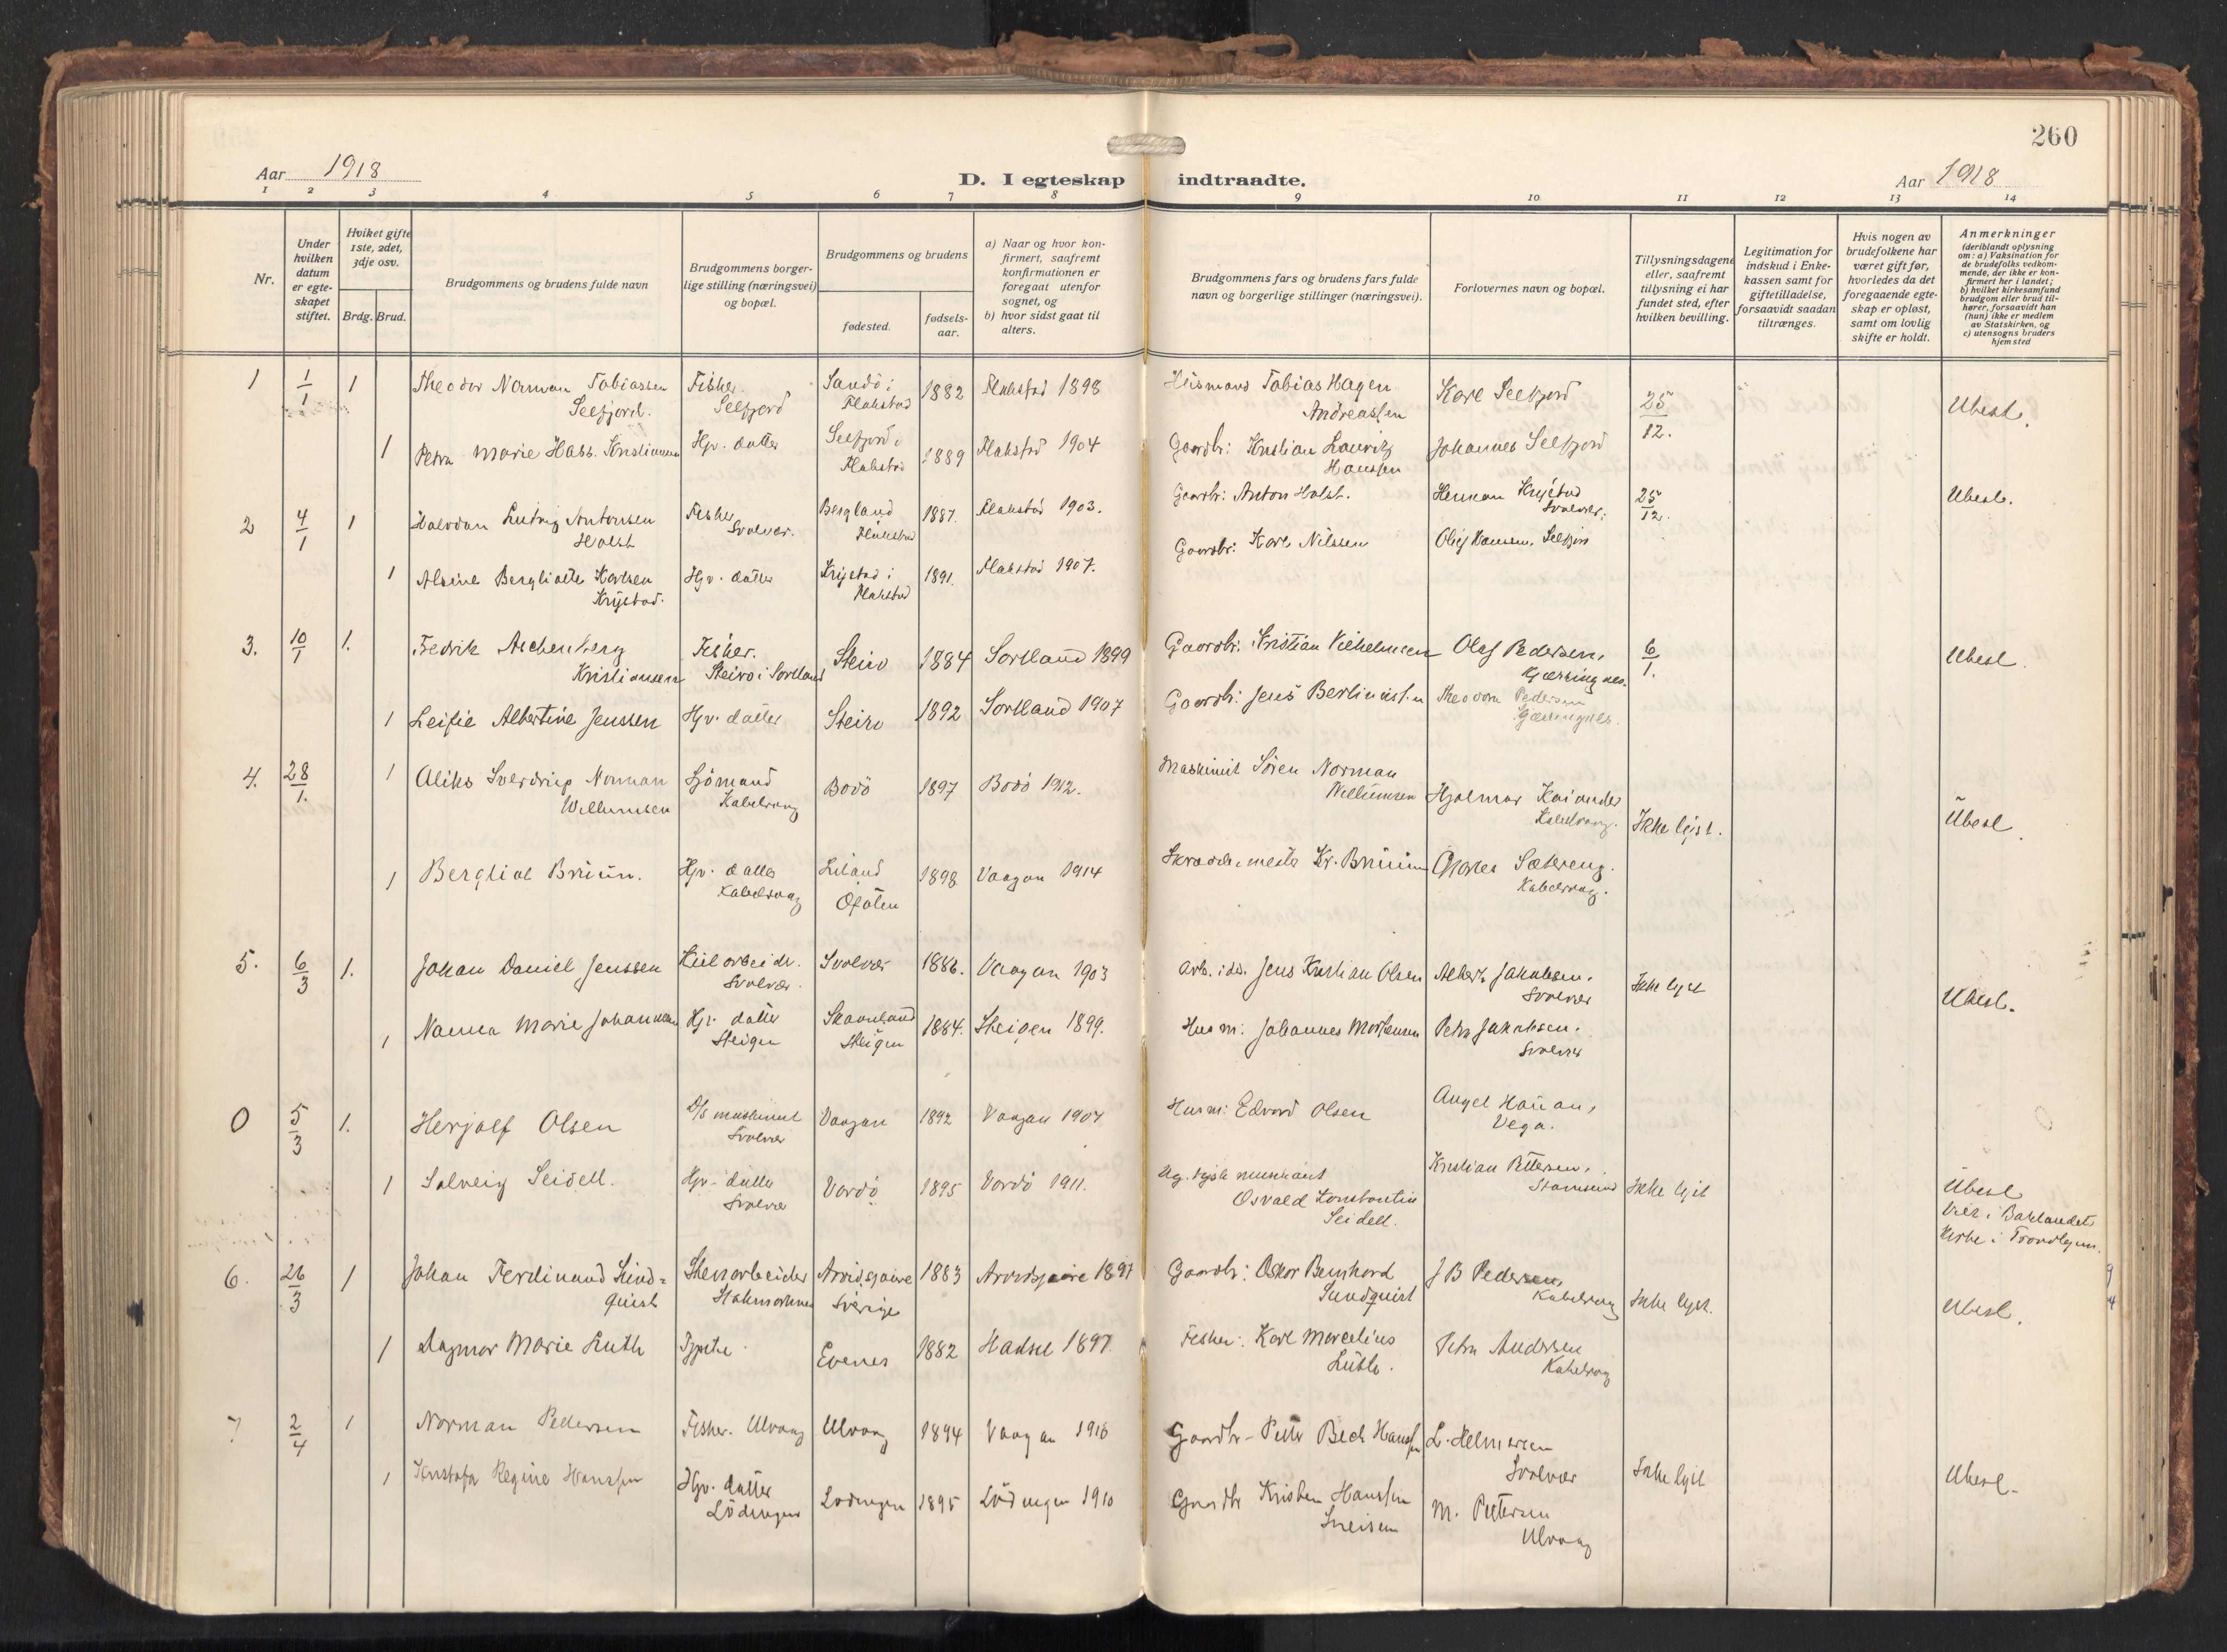 260
Aar 1918
D. I egteskap indtraadte.
Aar 1918
1 2 3 4 5 6 7 8 9 10 11 12 13 14
Nr.
Under hvilken datum er egte-skapet stiftet.
Hviket gifte 1ste, 2det, 3dje osv.
Brdg. Brud.
Brudgommens og brudens fulde navn
Brudgommens borger-lige stilling (næringsvei) og bopæl.
Brudgommens og brudens
fødested.
fødsels-aar.
a) Naar og hvor kon-firmert, saafremt konfirmationen er foregaat utenfor sognet, og
b) hvor sidst gaat til alters.
Brudgommens fars og brudens fars fulde navn og borgerlige stillinger (næringsvei).
Forlovernes navn og bopæl.
Tillysningsdagene eller, saafremt tillysning ei har fundet sted, efter hvilken bevilling.
Legitimation for indskud i Enke-kassen samt for giftetilladelse, forsaavidt saadan tiltrænges.
Hvis nogen av brudefolkene har været gift før, hvorledes da det foregaaende egte-skap er opløst, samt om lovlig skifte er holdt.
Anmerkninger (deriblandt oplysning om: a) Vaksination for de brudefolks vedkom-mende, der ikke er kon-firmert her i landet; b) hvilket kirkesamfund brudgom eller brud til-hører, forsaavidt han (hun) ikke er medlem av Statskirken, og c) utensogns bruders hjemsted
1 1/1 1 Theodor Norman Tobiassen Selfjord. Fisker. Selfjord Sandö i Flakstad 1882 Flakstad 1898 Husmand Tobias Hagen Andreassen Karl Selfjord 25/12. Ubesl.
1 Petra Marie Hass. Kristiansen Hjv. datter Selfjord i Flakstad 1889 Flakstad 1904 Gaardbr: Kristian Lauritz Hanssen Johannes Selfjord
2 4/1 1 Halvdan Ludvig Antonsen Holst Fisker Svolvær. Bergland Flakstad 1887. Flakstad 1903. Gaardbr: Anton Holst. Herman Krystad Svolvær. 25/12. Ubesl.
1 Alvine Bergliotte Karlsen Krystad. Hjv. datter Krystad i Flakstad 1891. Flakstad 1907. Gaardbr: Karl Nilssen Oluf Hansen, Selfjord
3. 10/1 1. Fedrik Aschenberg Kristiansen Fisker. Steiro i Sortland Steiro 1884 Sortland 1899 Gaardbr: Kristian Vilhelmsen Olaf Pedersen, Gjærringnes. 6/1. Ubesl.
1 Leifie Albertine Jenssen Hjv. datter Steiro 1892 Sortland 1907 Gaardbr: Jens Berlinussen Theodora Pedersen
4. 28/1. 1 Aliks Sverdrup Norman Willumsen Sjömand Kabelvaag Bodö 1897 Bodö 1912. Maskinist Sören Norman Willumsen Hjalmar Kabelvaag. Ikke lyst. Ubesl.
1 Bergliot Bruun. Hjv. datter Kabelvaag Liland Ofoten 1898 Vaagan 1914 Skræddermester Kr. Bruun Sætereng. Kabelvaag.
5. 6/3 1. Johan Daniel Jenssen Svolvær. Svolvær 1886. Vaagan 1903 Jens Kristian Olsen Albert Jakobsen. Svolvær Ikke lyst Ubesl.
1 Nanna Marie Johannesen Hjv. datter Steigen Skaanland Steigen 1884. Steigen 1899. Husm: Johannes Mortensen Petra Jakobsen. Svolvær
0 5/3 1. Herjolf Olsen D/S maskinist Svolvær Vaagan 1892 Vaagan 1907 Husm: Edvard Olsen Angel Vega.
1 Solveig Seidell. Hjv. datter Svolvær Vardö 1895 Vardö 1911. Osvald Konstantin Seidell. Kristian Pettersen. Stamsund Ikke lyst Ubesl Viet i Baklandets Kirke i Trondhjem.
6. 26/3 1 Johan Ferdinand Lindquist Stenarbeider Arvidsjaure Sverige 1883 Arvidsjaure 1897 Gaardbr: Oskar Bernhard Lundquist J B Pedersen, Kabelvaag Ikke lyst. Ubesl.
1 Dagmar Marie Luth Evenes 1882 Hadsel 1897. Fisker: Karl Marcelius Luth. Petra Andersen Kabelvaag
7 2/4 1 Norman Pettersen Fisker. Ulvaag Ulvaag 1894 Vaagan 1910 Gaardbr- Petter Bech Hanssen L. Helmersen Svolvær Ikke lyst Ubesl-
1 Kristofa Regine Hanssen Hjv. datter Lödingen Lödingen 1895 Lödingen 1910 Gaardbr Kristen Hanssen M. Pettersen Ulvaag